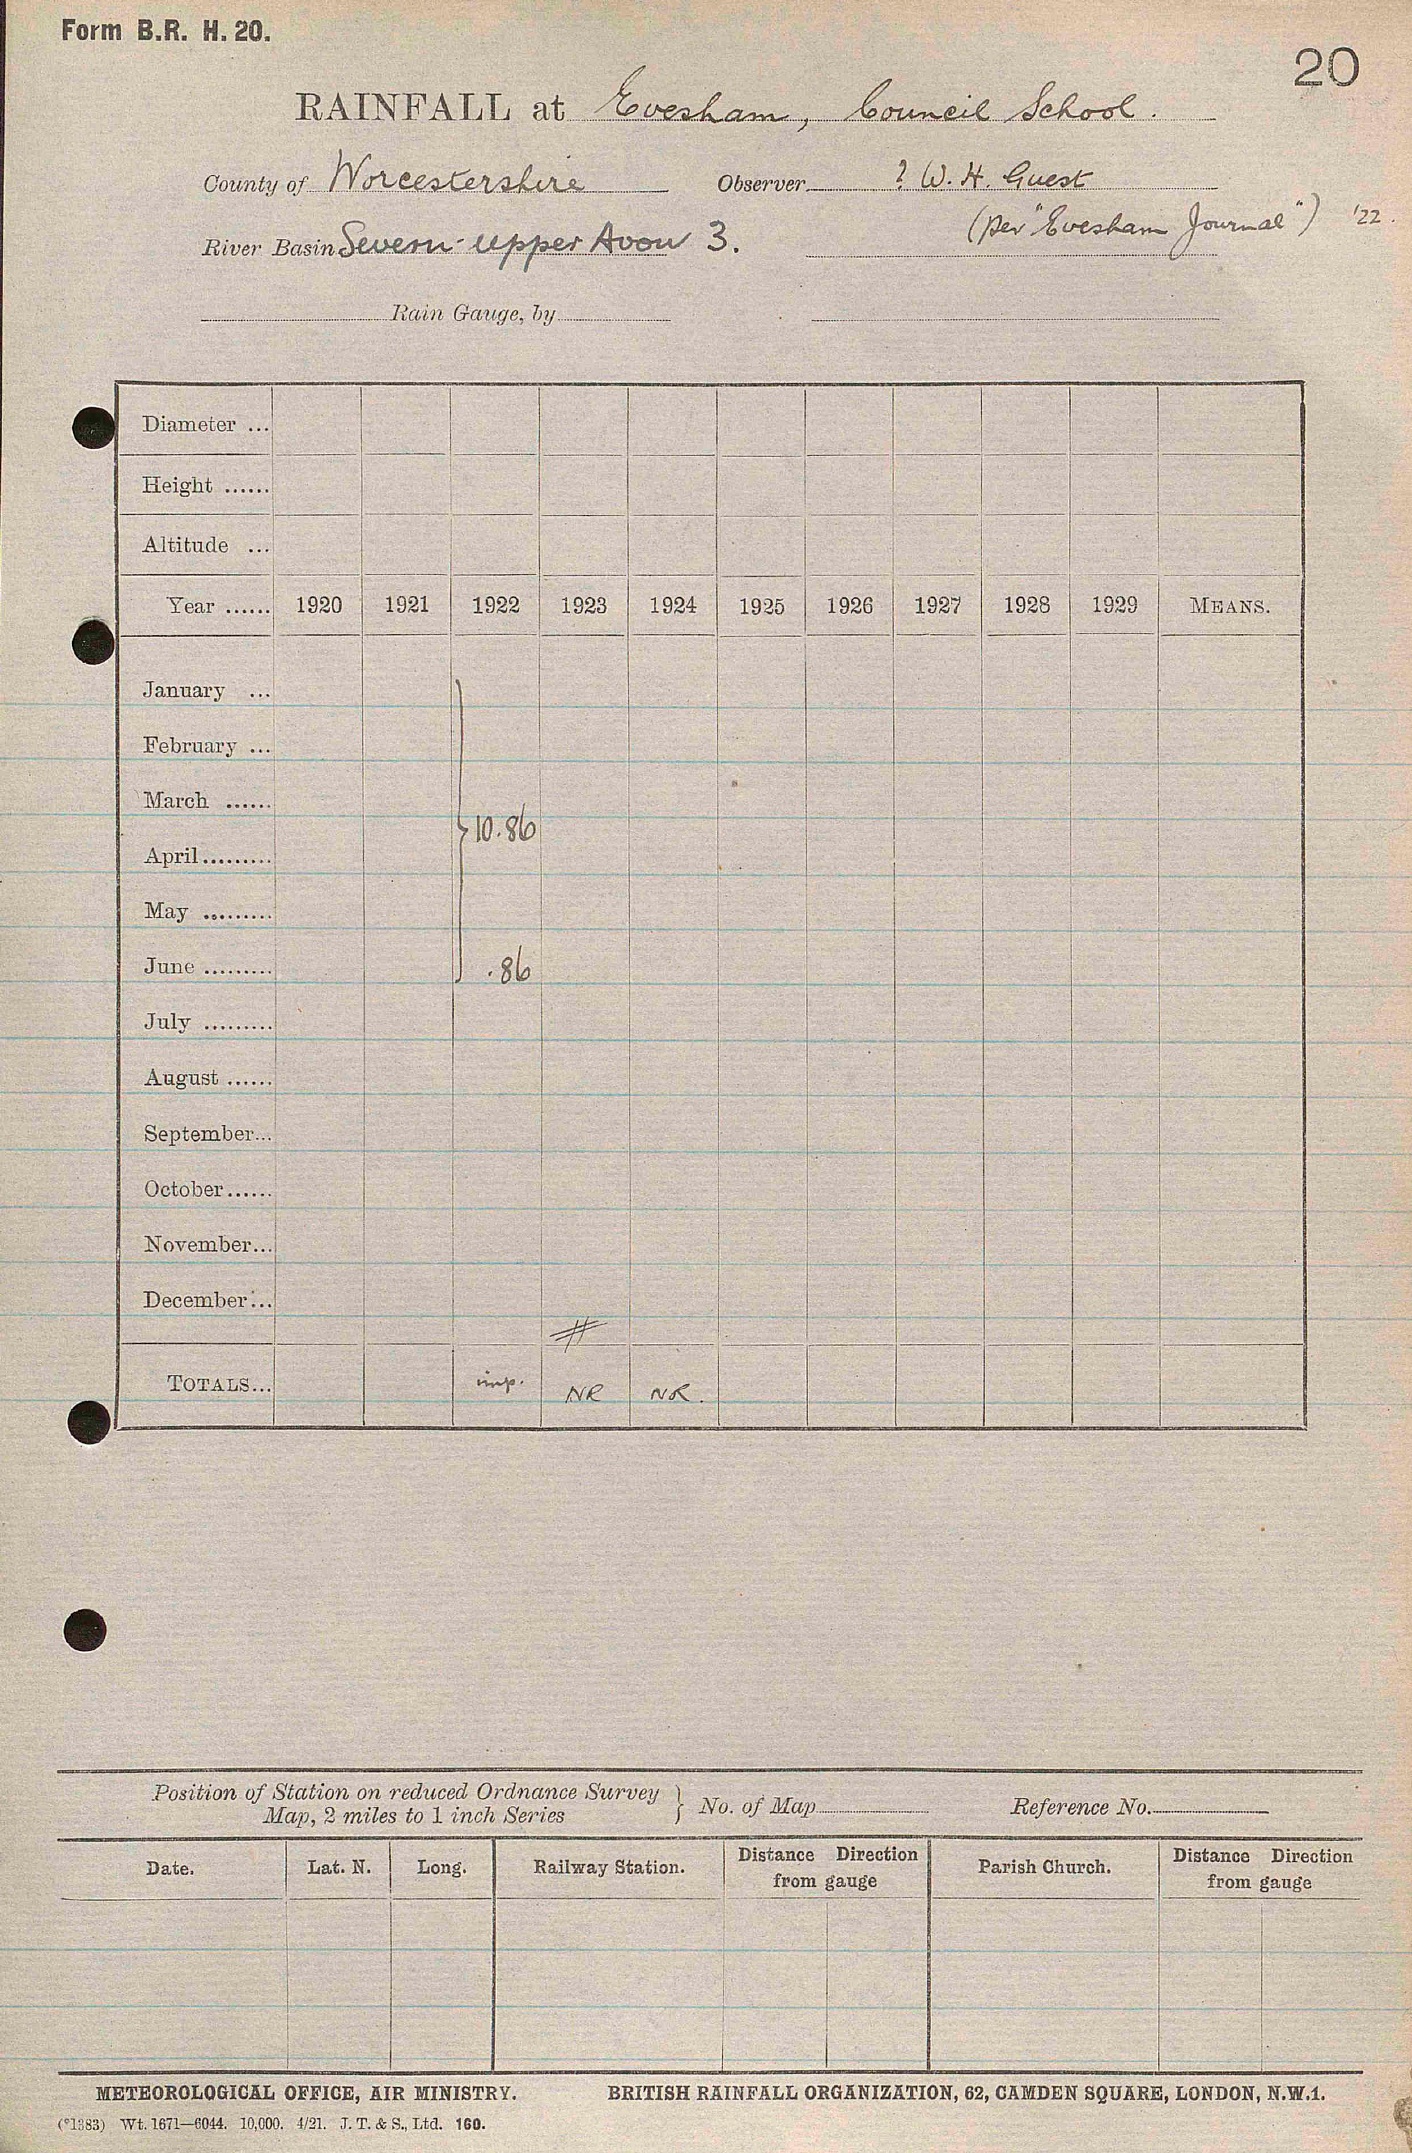 Form B.R. H. 20.
20
RAINFALL at Evesham, Council School.
County of Worcestershire Observer ? W. H. Guest
(per "Evesham Journal") '22.
River Basin Severn - Upper Avon 3.
Rain Gauge, by
Diameter ...
Height ......
Altitude ...
Year ...... 1920 1921 1922 1923 1924 1925 1926 1927 1928 1929 MEANS.
January ...
February ...
March ......
10.86
April .........
May .........
June ......... .86
July .........
August ......
September...
October......
November...
December...
#
TOTALS... imp. NR NR.
Position of Station on reduced Ordnance Survey
Map, 2 miles to 1 inch Series } No. of Map Reference No.
Date. Lat. N. Long. Railway Station. Distance Direction from gauge Parish Church. Distance Direction from gauge
METEOROLOGICAL OFFICE, AIR MINISTRY. BRITISH RAINFALL ORGANIZATION, 62, CAMDEN SQUARE, LONDON, N.W.1.
(*1383) Wt. 1671—6044. 10,000. 4/21. J. T. & S., Ltd. 160.